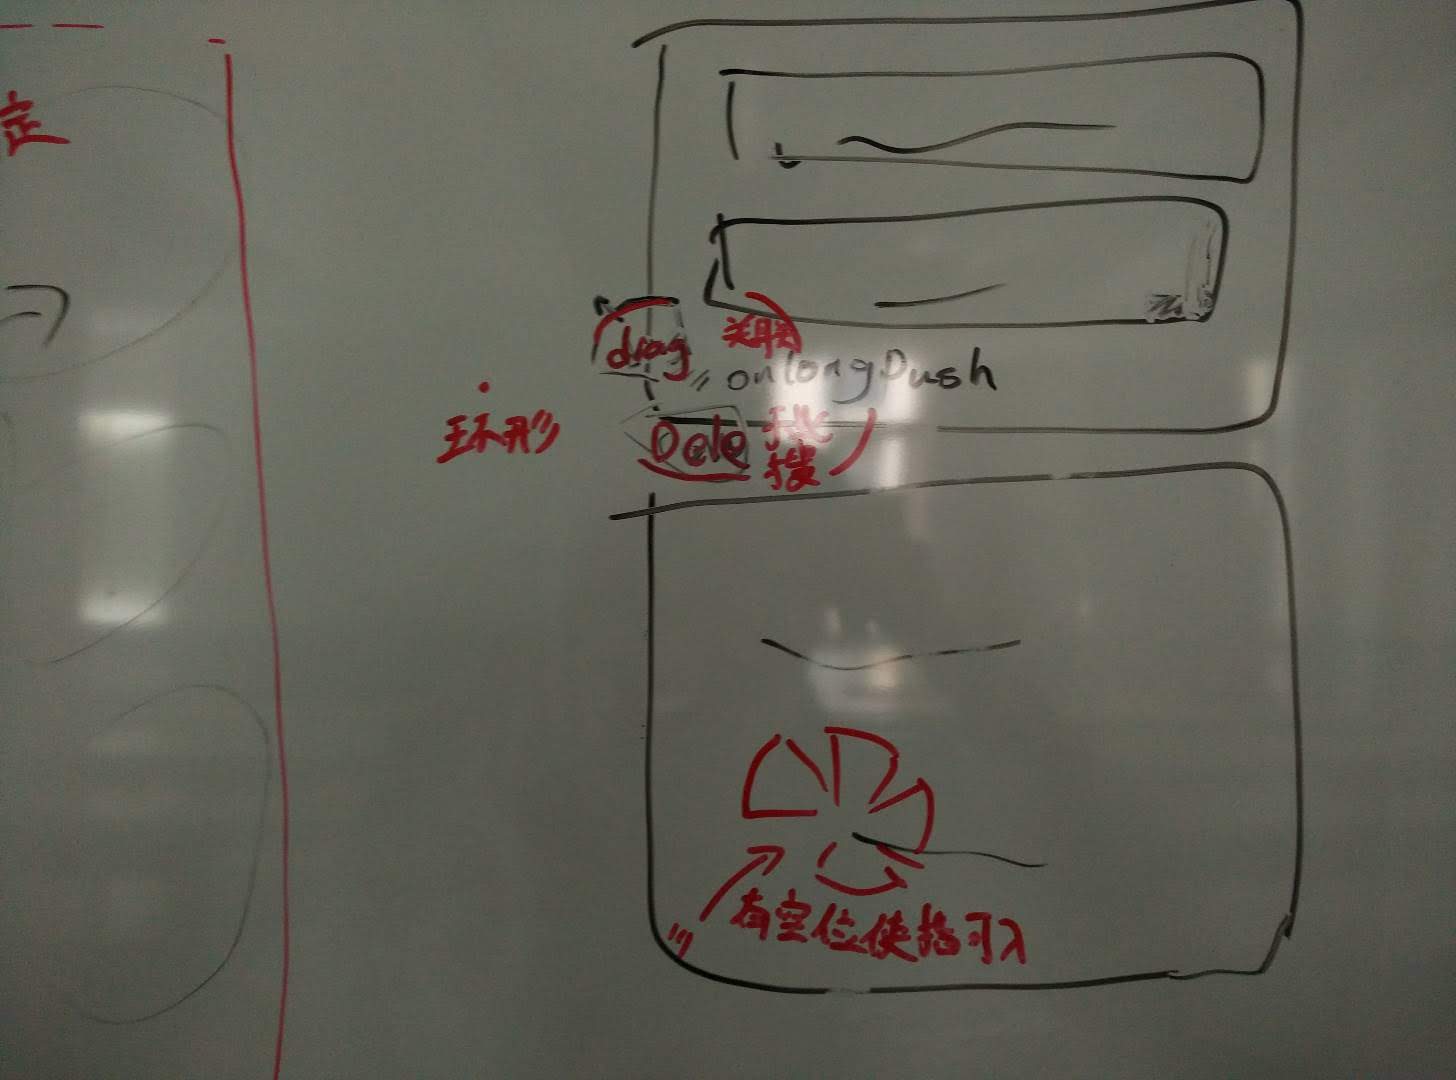 定
drag
关联
onLongPush
环形
Dele
搜
有空位使指可入